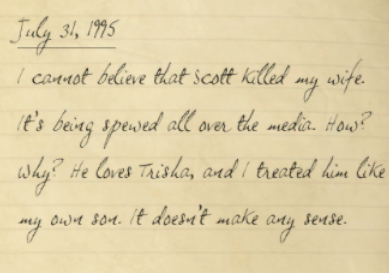 July 31, 1995
I cannot believe that Scott killed my wife.
It's being spewed all over the media. How?
Why? He loves Trisha, and I treated him like
my own son. It doesn't make any sense.